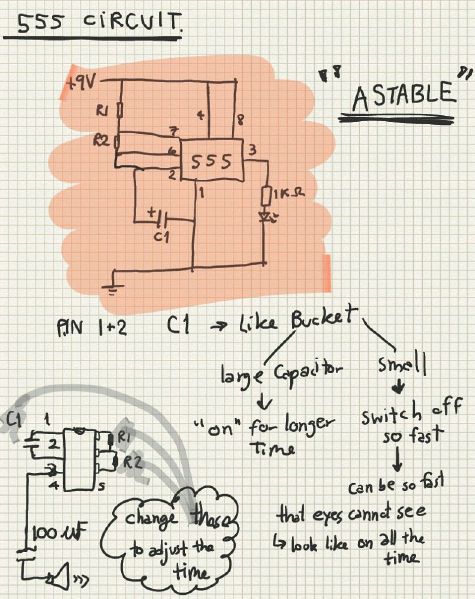 555 CIRCUIT.
"ASTABLE"
+9V
R1
R2
7
6
2
4
8
555
3
1
1KΩ
+
C1
PIN 1+2 C1 → Like Bucket
large Capacitor
↓
"on" for longer
Time
small
↓
switch off
so fast
↓
Can be so fast
that eyes cannot see
↳ look like on all the
time
C1
1
2
3
4
5
R1
R2
100 uF
change these
to adjust the
time